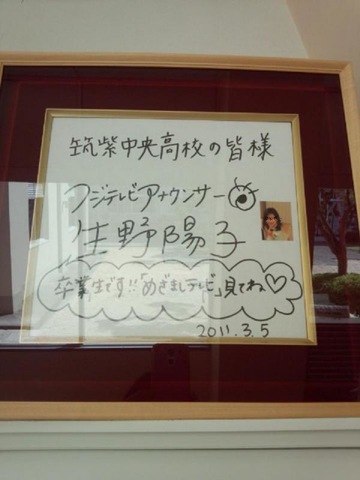 筑紫中央高校の皆様
フジテレビアナウンサー
生野陽子
卒業生です!!「めざましテレビ」見てね♡
2011.3.5